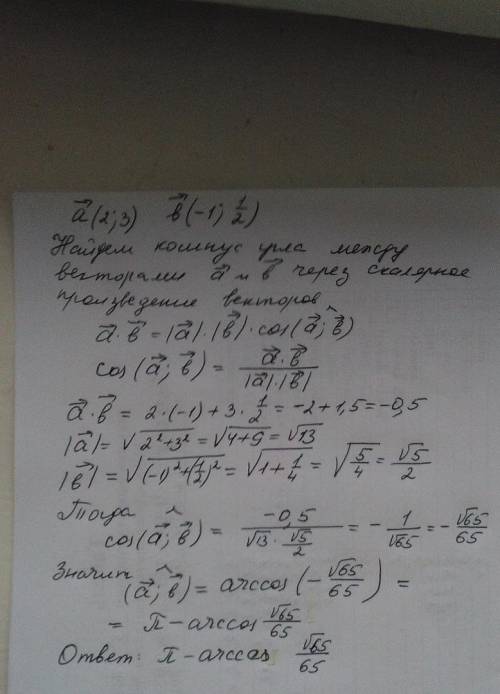 a⃗(2;3) b⃗(-1; 1/2)
Найдем косинус угла между
векторами a⃗ и b⃗ через скалярное
произведение векторов
a⃗·b⃗ = |a⃗|·|b⃗|·cos(a⃗;^b⃗)
cos(a⃗; b⃗) = a⃗·b⃗ / |a⃗|·|b⃗|
a⃗·b⃗ = 2·(-1)+3·1/2 = -2+1,5 = -0,5
|a⃗| = √(2²+3²) = √(4+9) = √13
|b⃗| = √((-1)²+(1/2)²) = √(1+1/4) = √(5/4) = √5/2
Тогда
cos(a⃗;^b⃗) = -0,5 / (√13·√5/2) = -1/√65 = -√65/65
Значит
(a⃗;^b⃗) = arccos(-√65/65) =
= π - arccos √65/65
Ответ: π - arccos √65/65